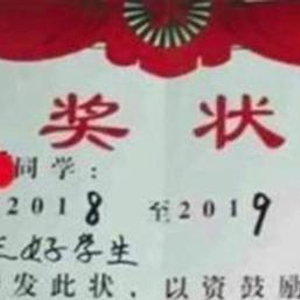 奖状
同学：
2018至2019
三好学生
发此状，以资鼓励